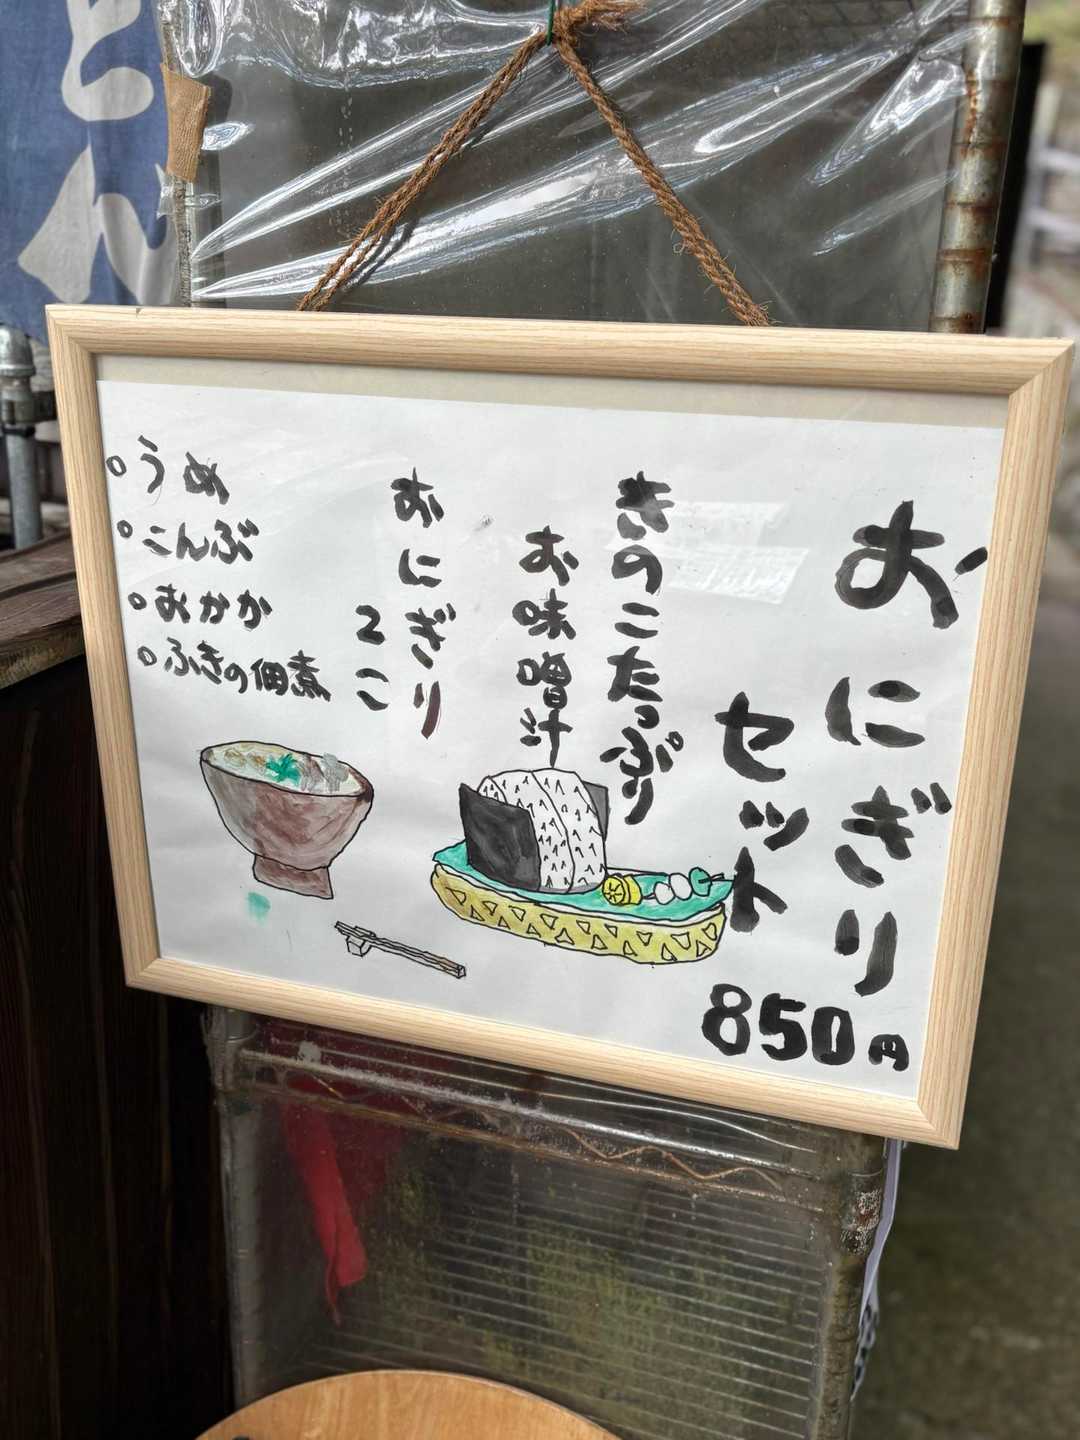 おにぎり
セット
850円
きのこたっぷり
お味噌汁
おにぎり
2こ
○うめ
○こんぶ
○おかか
○ふきの佃煮
どん